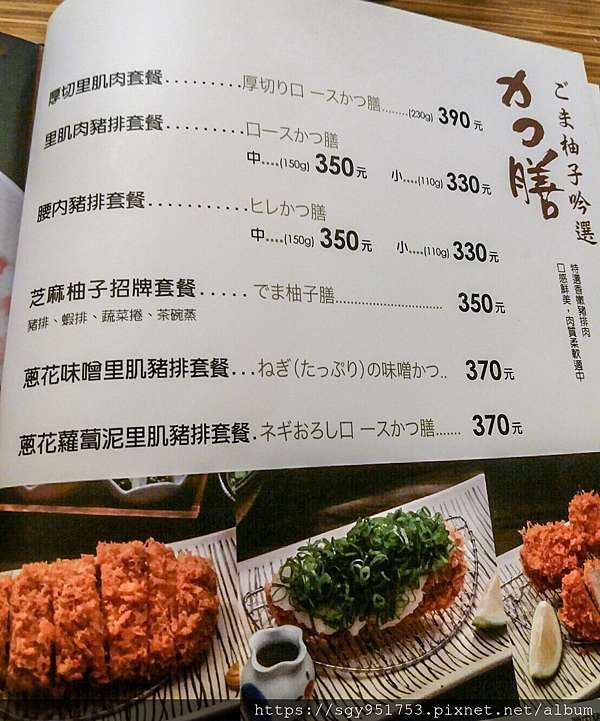 ごま柚子吟選
かつ膳
特選香嫩豬排肉
口感鮮美，肉質柔軟適中
厚切里肌肉套餐..........厚切り口ースかつ膳........(230g) 390元
里肌肉豬排套餐...........口ースかつ膳
中....(150g) 350元 小....(110g) 330元
腰內豬排套餐............ヒレかつ膳
中....(150g) 350元 小....(110g) 330元
芝麻柚子招牌套餐.....でま柚子膳.............................350元
豬排、蝦排、蔬菜捲、茶碗蒸
蔥花味噌里肌豬排套餐...ねぎ(たっぷり)の味噌かつ.. 370元
蔥花蘿蔔泥里肌豬排套餐.ネギおろし口ースかつ膳.......370元
https://sgy951753.pixnet.net/album